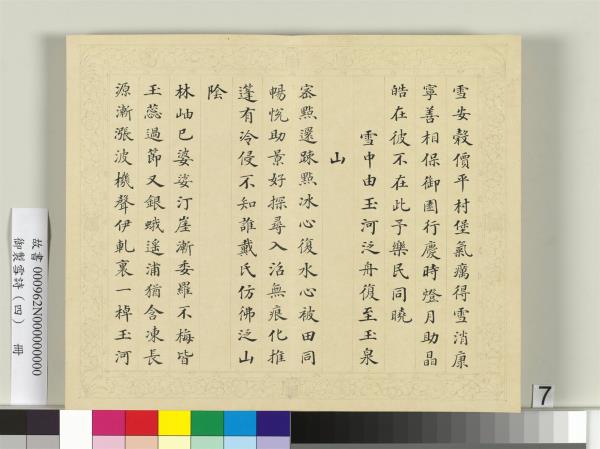 雪安穀價平村堡氣癘得雪消康
寧善相保御園行慶時燈月助晶
皓在彼不在此予樂民同曉
雪中由玉河泛舟復至玉泉
山
密點還疎點冰心復水心被田同
暢悅助景好探尋入沼無痕化推
蓬有冷侵不知誰戴氏仿佛泛山
陰
林岫已婆娑汀崖漸委羅不梅皆
玉蕊過節又銀蛾遙浦猶含凍長
源漸漲波機聲伊軋裏一棹玉河
故書000962N000000000
御製雪詩(四) 冊
7